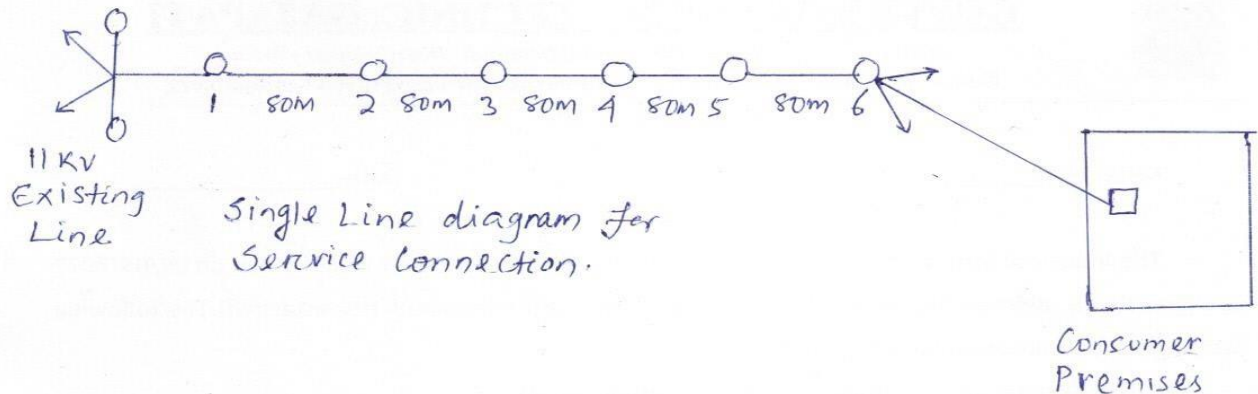 1 80m 2 80m 3 80m 4 80m 5 80m 6
11 KV
Existing
Line
Single Line diagram for
Service Connection.
Consumer
Premises